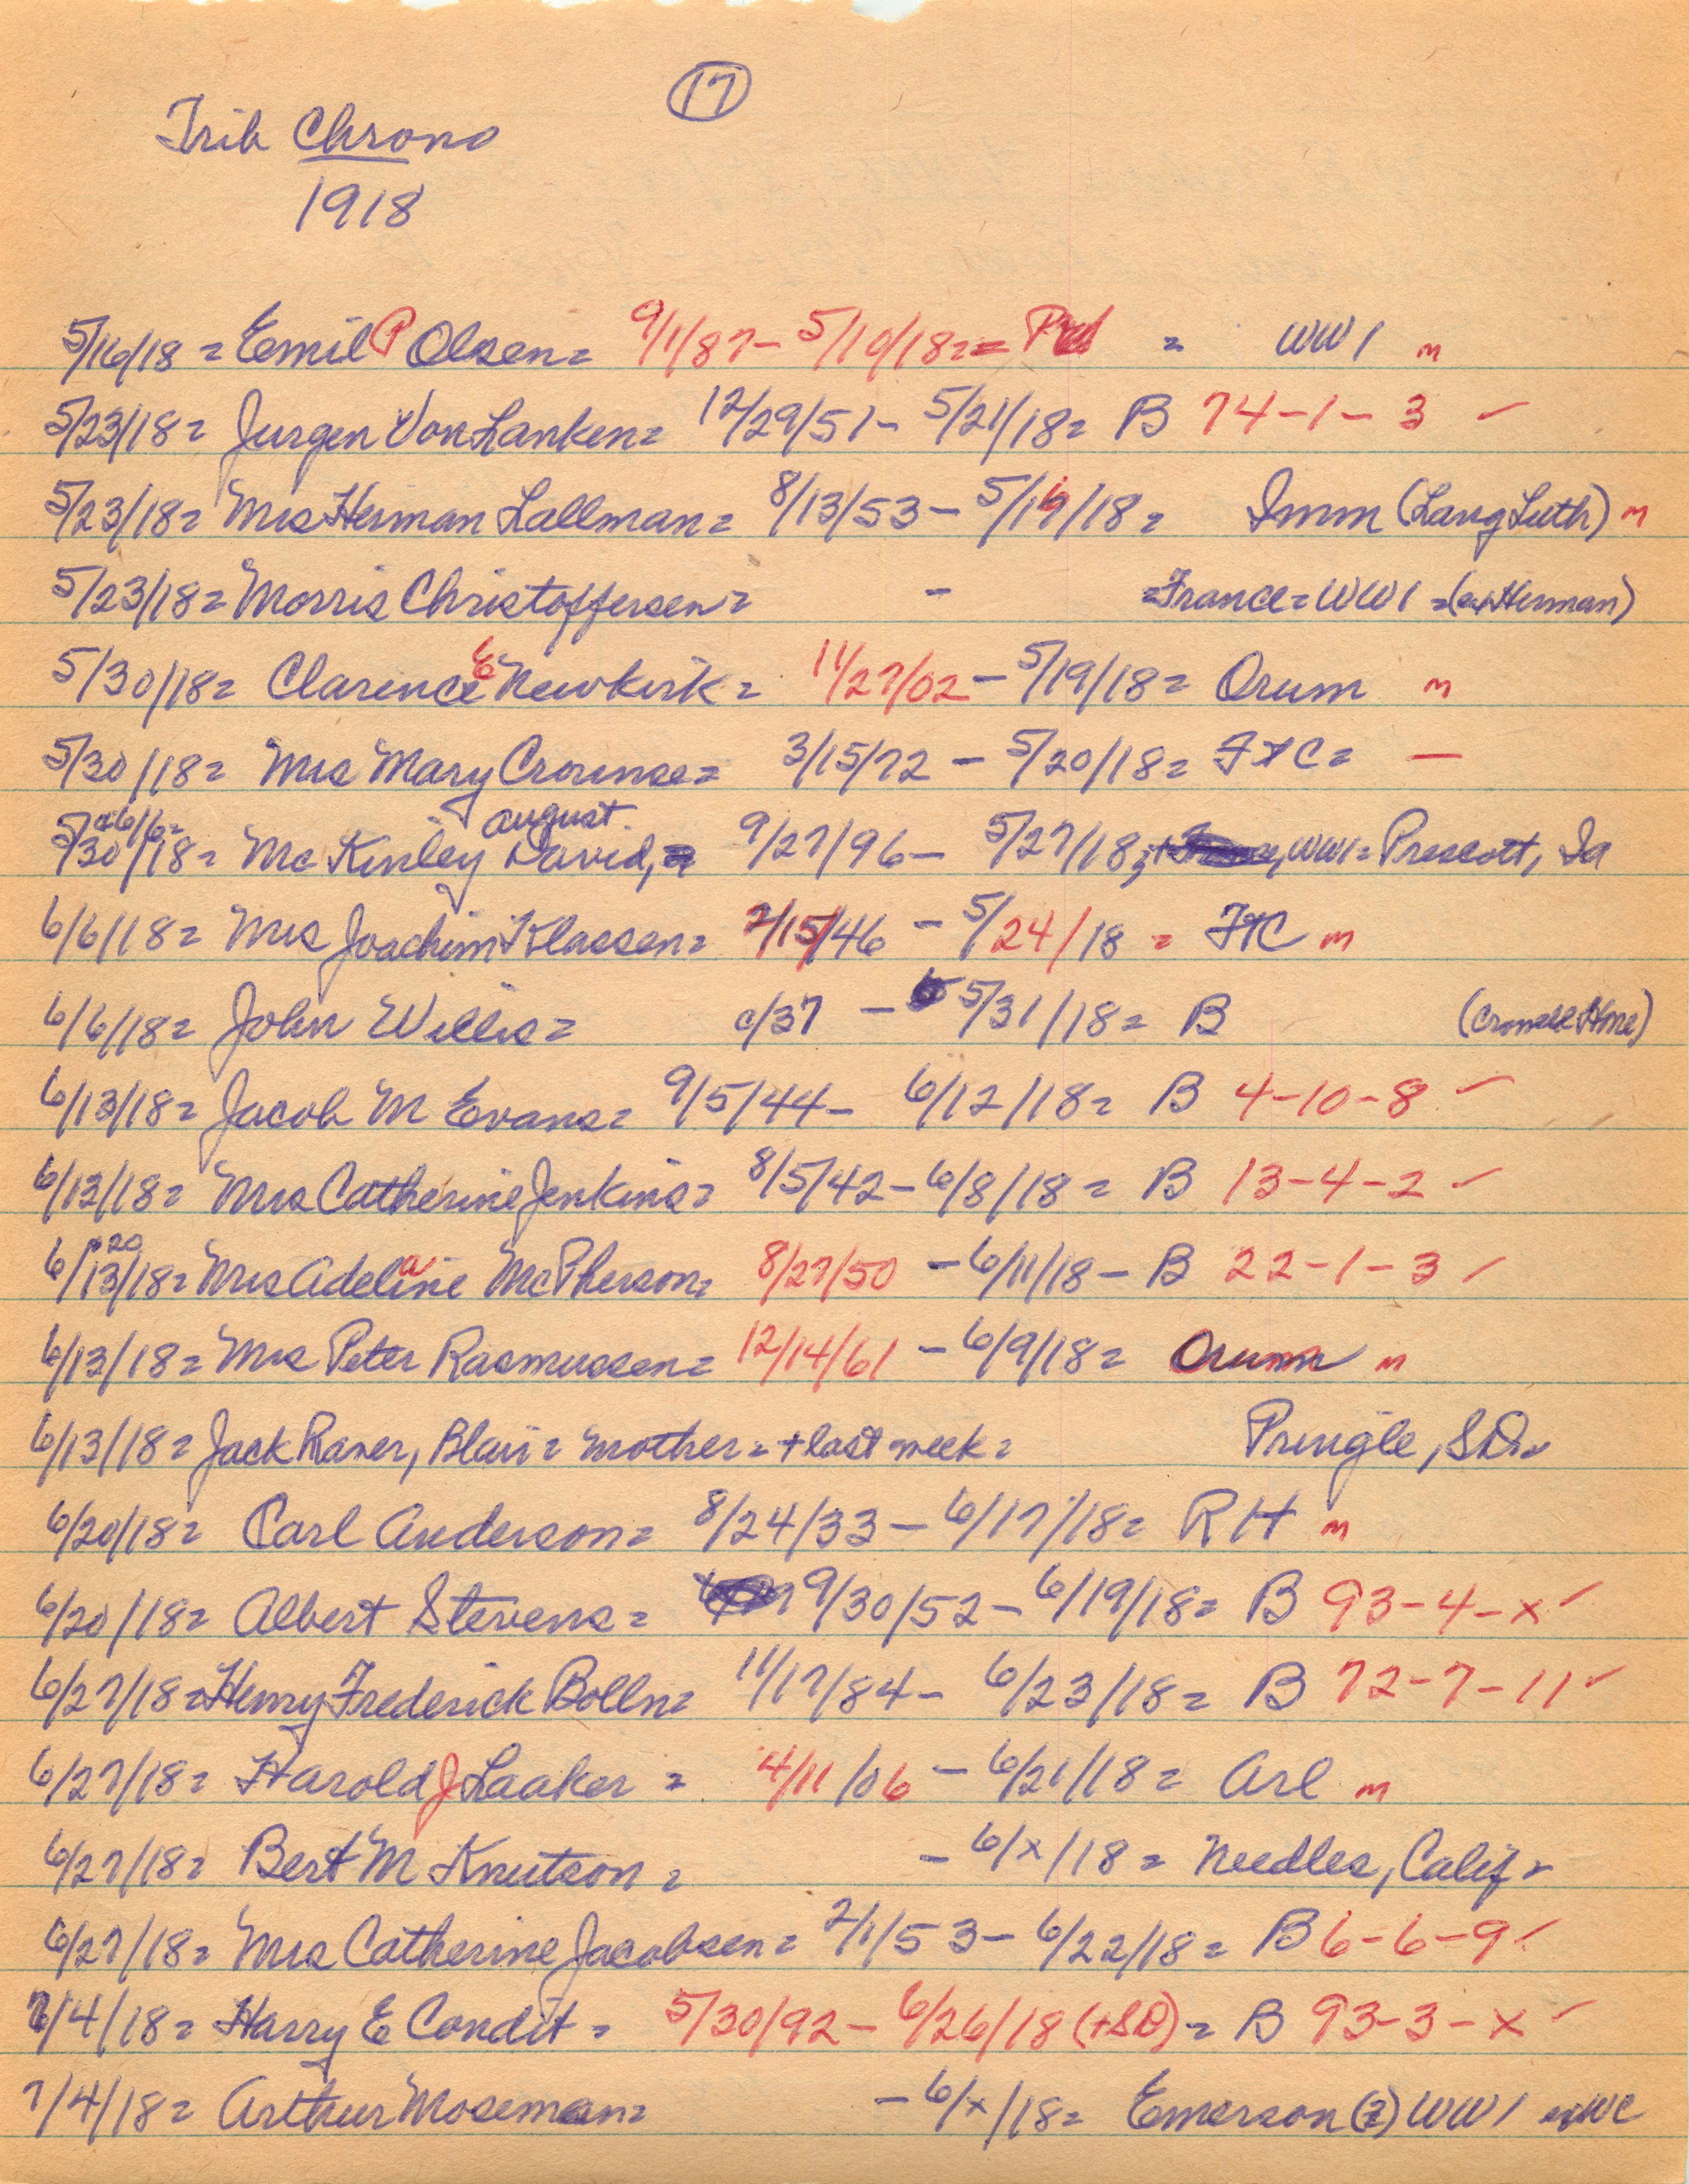 17
Trib Chrono
1918
5/16/18 = Emil P Olsen = 9/1/87 - 5/10/18 = = = WW1 m
5/23/18 = Jurgen Von Lanken = 12/29/51 - 5/21/18 = B 74-1-3 ✓
5/23/18 = Mrs Herman Lallman = 8/13/53 - 5/19/18 = Imm (Lang Luth) m
5/23/18 = Morris Christoffersen = - = France = WW1 = (ex Herman)
5/30/18 = Clarence E Newkirk = 11/27/02 - 5/19/18 = Orum m
5/30/18 = Mrs Mary Crounse = 3/15/72 - 5/20/18 = FTC = —
+6/6 = august
5/30/18 = McKinley David, = 9/27/96 - 5/27/18, WW1 = Prescott, Ia
6/6/18 = Mrs Joachim Klassen = 2/15/46 - 5/24/18 = FTC m
6/6/18 = John Willis = c/37 - 5/31/18 = B (Crowell Home)
6/13/18 = Jacob M Evans = 9/5/44 - 6/12/18 = B 4-10-8 ✓
6/13/18 = Mrs Catherine Jenkins = 8/5/42 - 6/8/18 = B 13-4-2 ✓
+20
6/13/18 = Mrs Adeline a McPherson = 8/27/50 - 6/11/18 - B 22-1-3 ✓
6/13/18 = Mrs Peter Rasmussen = 12/14/61 - 6/9/18 = Orum m
6/13/18 = Jack Raver, Blair = mother = + last week = Pringle, SD =
6/20/18 = Carl Anderson = 8/24/33 - 6/17/18 = RH m
6/20/18 = Albert Stevens = 9/30/52 - 6/19/18 = B 93-4-x ✓
6/27/18 = Henry Frederick Bolln = 11/17/84 - 6/23/18 = B 72-7-11 ✓
6/27/18 = Harold J Laaker = 4/11/06 - 6/21/18 = Arl m
6/27/18 = Bert M Knutson = - 6/x/18 = Needles, Calif =
6/27/18 = Mrs Catherine Jacobsen = 2/1/53 - 6/22/18 = B 6-6-9 ✓
7/4/18 = Harry E Condit = 5/30/92 - 6/26/18 (+SD) = B 93-3-x ✓
7/4/18 = Arthur Moseman = - 6/x/18 = Emerson (?) WW1 ex WC